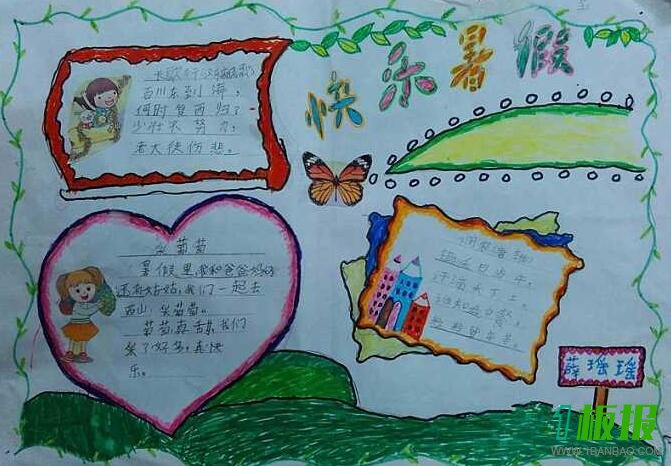 快乐暑假
长歌行
百川东到海,
何时复西归?
少壮不努力,
老大徒伤悲。
采葡萄
暑假里,我和爸爸妈妈
还有姑姑,我们一起去
西山,采葡萄。
葡萄真甜,我们
采了好多,真快
乐。
锄禾日当午,
汗滴禾下土。
谁知盘中餐,
粒粒皆辛苦。
薛瑶瑶
板报
WWW.1BANBAO.COM